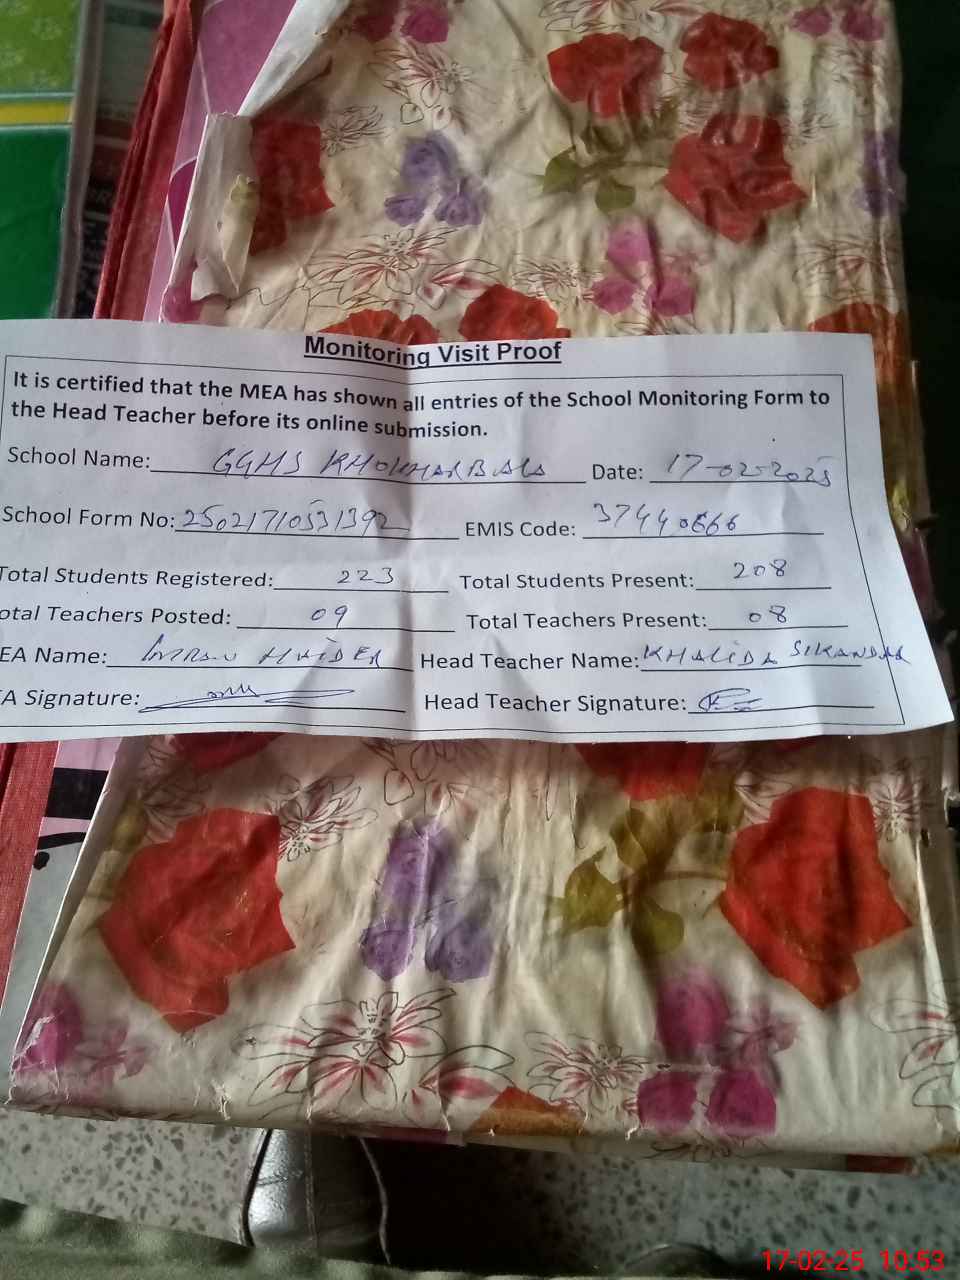 Monitoring Visit Proof
It is certified that the MEA has shown all entries of the School Monitoring Form to
the Head Teacher before its online submission.
School Name: GGHS KHOKHAR BALA Date: 17-02-2025
School Form No: 25021710531392 EMIS Code: 37440666
Total Students Registered: 223 Total Students Present: 208
otal Teachers Posted: 09 Total Teachers Present: 08
EA Name: IMRAN HAIDER Head Teacher Name: KHALIDA SIKANDAR
A Signature: Head Teacher Signature:
17-02-25 10:53